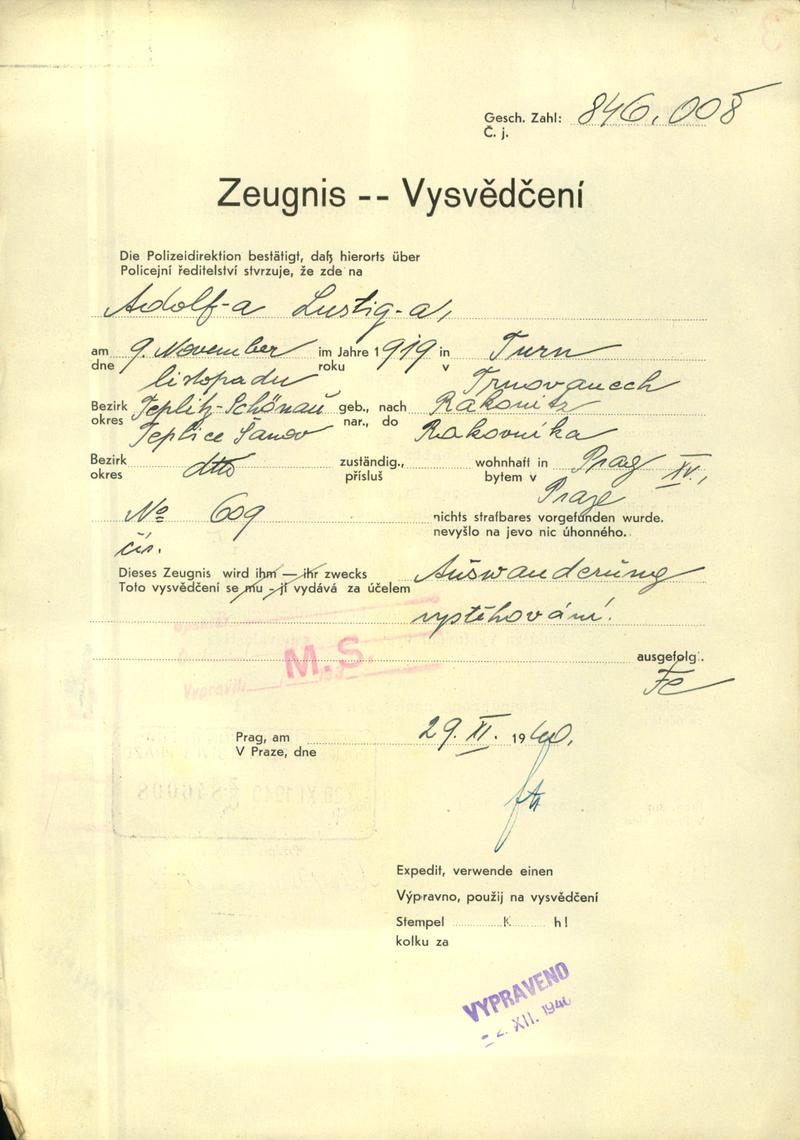 Gesch. Zahl: 846.008
Č. j.
Zeugnis -- Vysvědčení
Die Polizeidirektion bestätigt, daß hierorts über
Policejní ředitelství stvrzuje, že zde na
Adolf-a Lustig-a,
am 9. November im Jahre 1919 in Turn
dne listopadu roku v Trnovanech
Bezirk Teplitz-Schönau geb., nach Rakonitz
okres Teplice Šanov nar., do Rakovníka
Bezirk dtto zuständig., wohnhaft in Prag XV.,
okres přísluš bytem v Praze
No 609 nichts strafbares vorgefunden wurde.
čís. nevyšlo na jevo nic úhonného.
Dieses Zeugnis wird ihm — ihr zwecks Auswanderung
Toto vysvědčení se mu - jí vydává za účelem
vystěhování.
M.S.
ausgefolg.
Prag, am 29. XI. 1940,
V Praze, dne
Expedit, verwende einen
Výpravno, použij na vysvědčení
Stempel K h!
kolku za
VYPRAVENO
2. XII. 1940